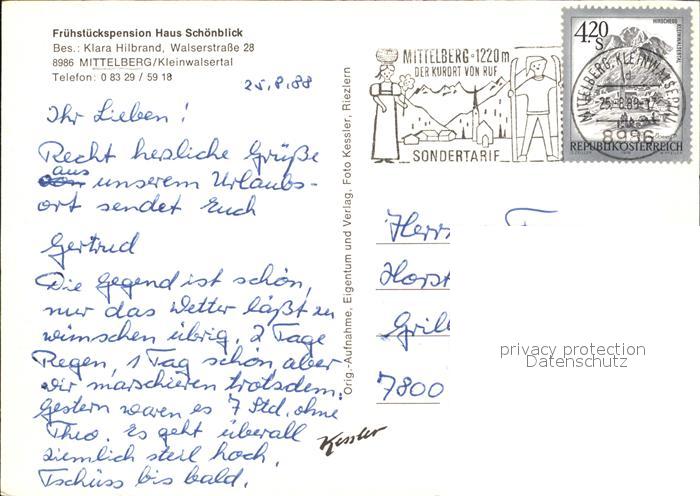 Frühstückspension Haus Schönblick
Bes.: Klara Hilbrand, Walserstraße 28
8986 MITTELBERG/Kleinwalsertal
Telefon: 0 83 29 / 59 18
25.8.88
Ihr Lieben!
Recht herzliche Grüße
aus unserem Urlaubs-
ort sendet Euch
Gertrud
Die Gegend ist schön,
nur das Wetter läßt zu
wünschen übrig. 2 Tage
Regen, 1 Tag schön, aber
wir marschieren trotzdem.
Gestern waren es 7 Std. ohne
Theo. Es geht überall
ziemlich steil hoch.
Tschüss bis bald.
Orig.-Aufnahme, Eigentum und Verlag, Foto Kessler, Riezlern
Kessler
MITTELBERG · 1220m
DER KURORT VON RUF
SONDERTARIF
4.20
S
HIRSCHEGG
KLEINWALSERTAL
REPUBLIK ÖSTERREICH
MITTELBERG, KLEINWALSERTAL
8986
Herrn
Horst
7800
privacy protection
Datenschutz